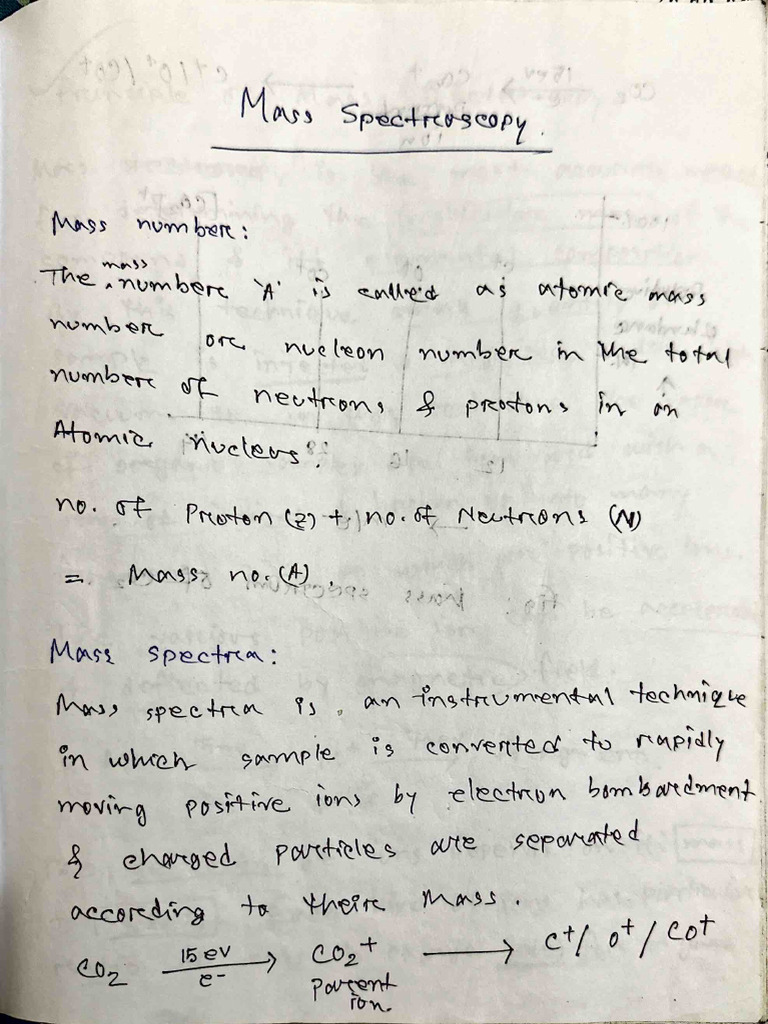 Mass Spectroscopy.
Mass number:
The mass number 'A' is called as atomic mass
number or nucleon number in the total
number of neutrons & protons in an
Atomic nucleus.
no. of Proton (Z) + no. of Neutrons (N)
= Mass no. (A)
Mass spectra:
Mass spectra is an instrumental technique
in which sample is converted to rapidly
moving positive ions by electron bombardment
& charged particles are separated
according to their mass.
CO2 15 ev e- → CO2+ → C+/ O+ / CO+
Parent
ion.